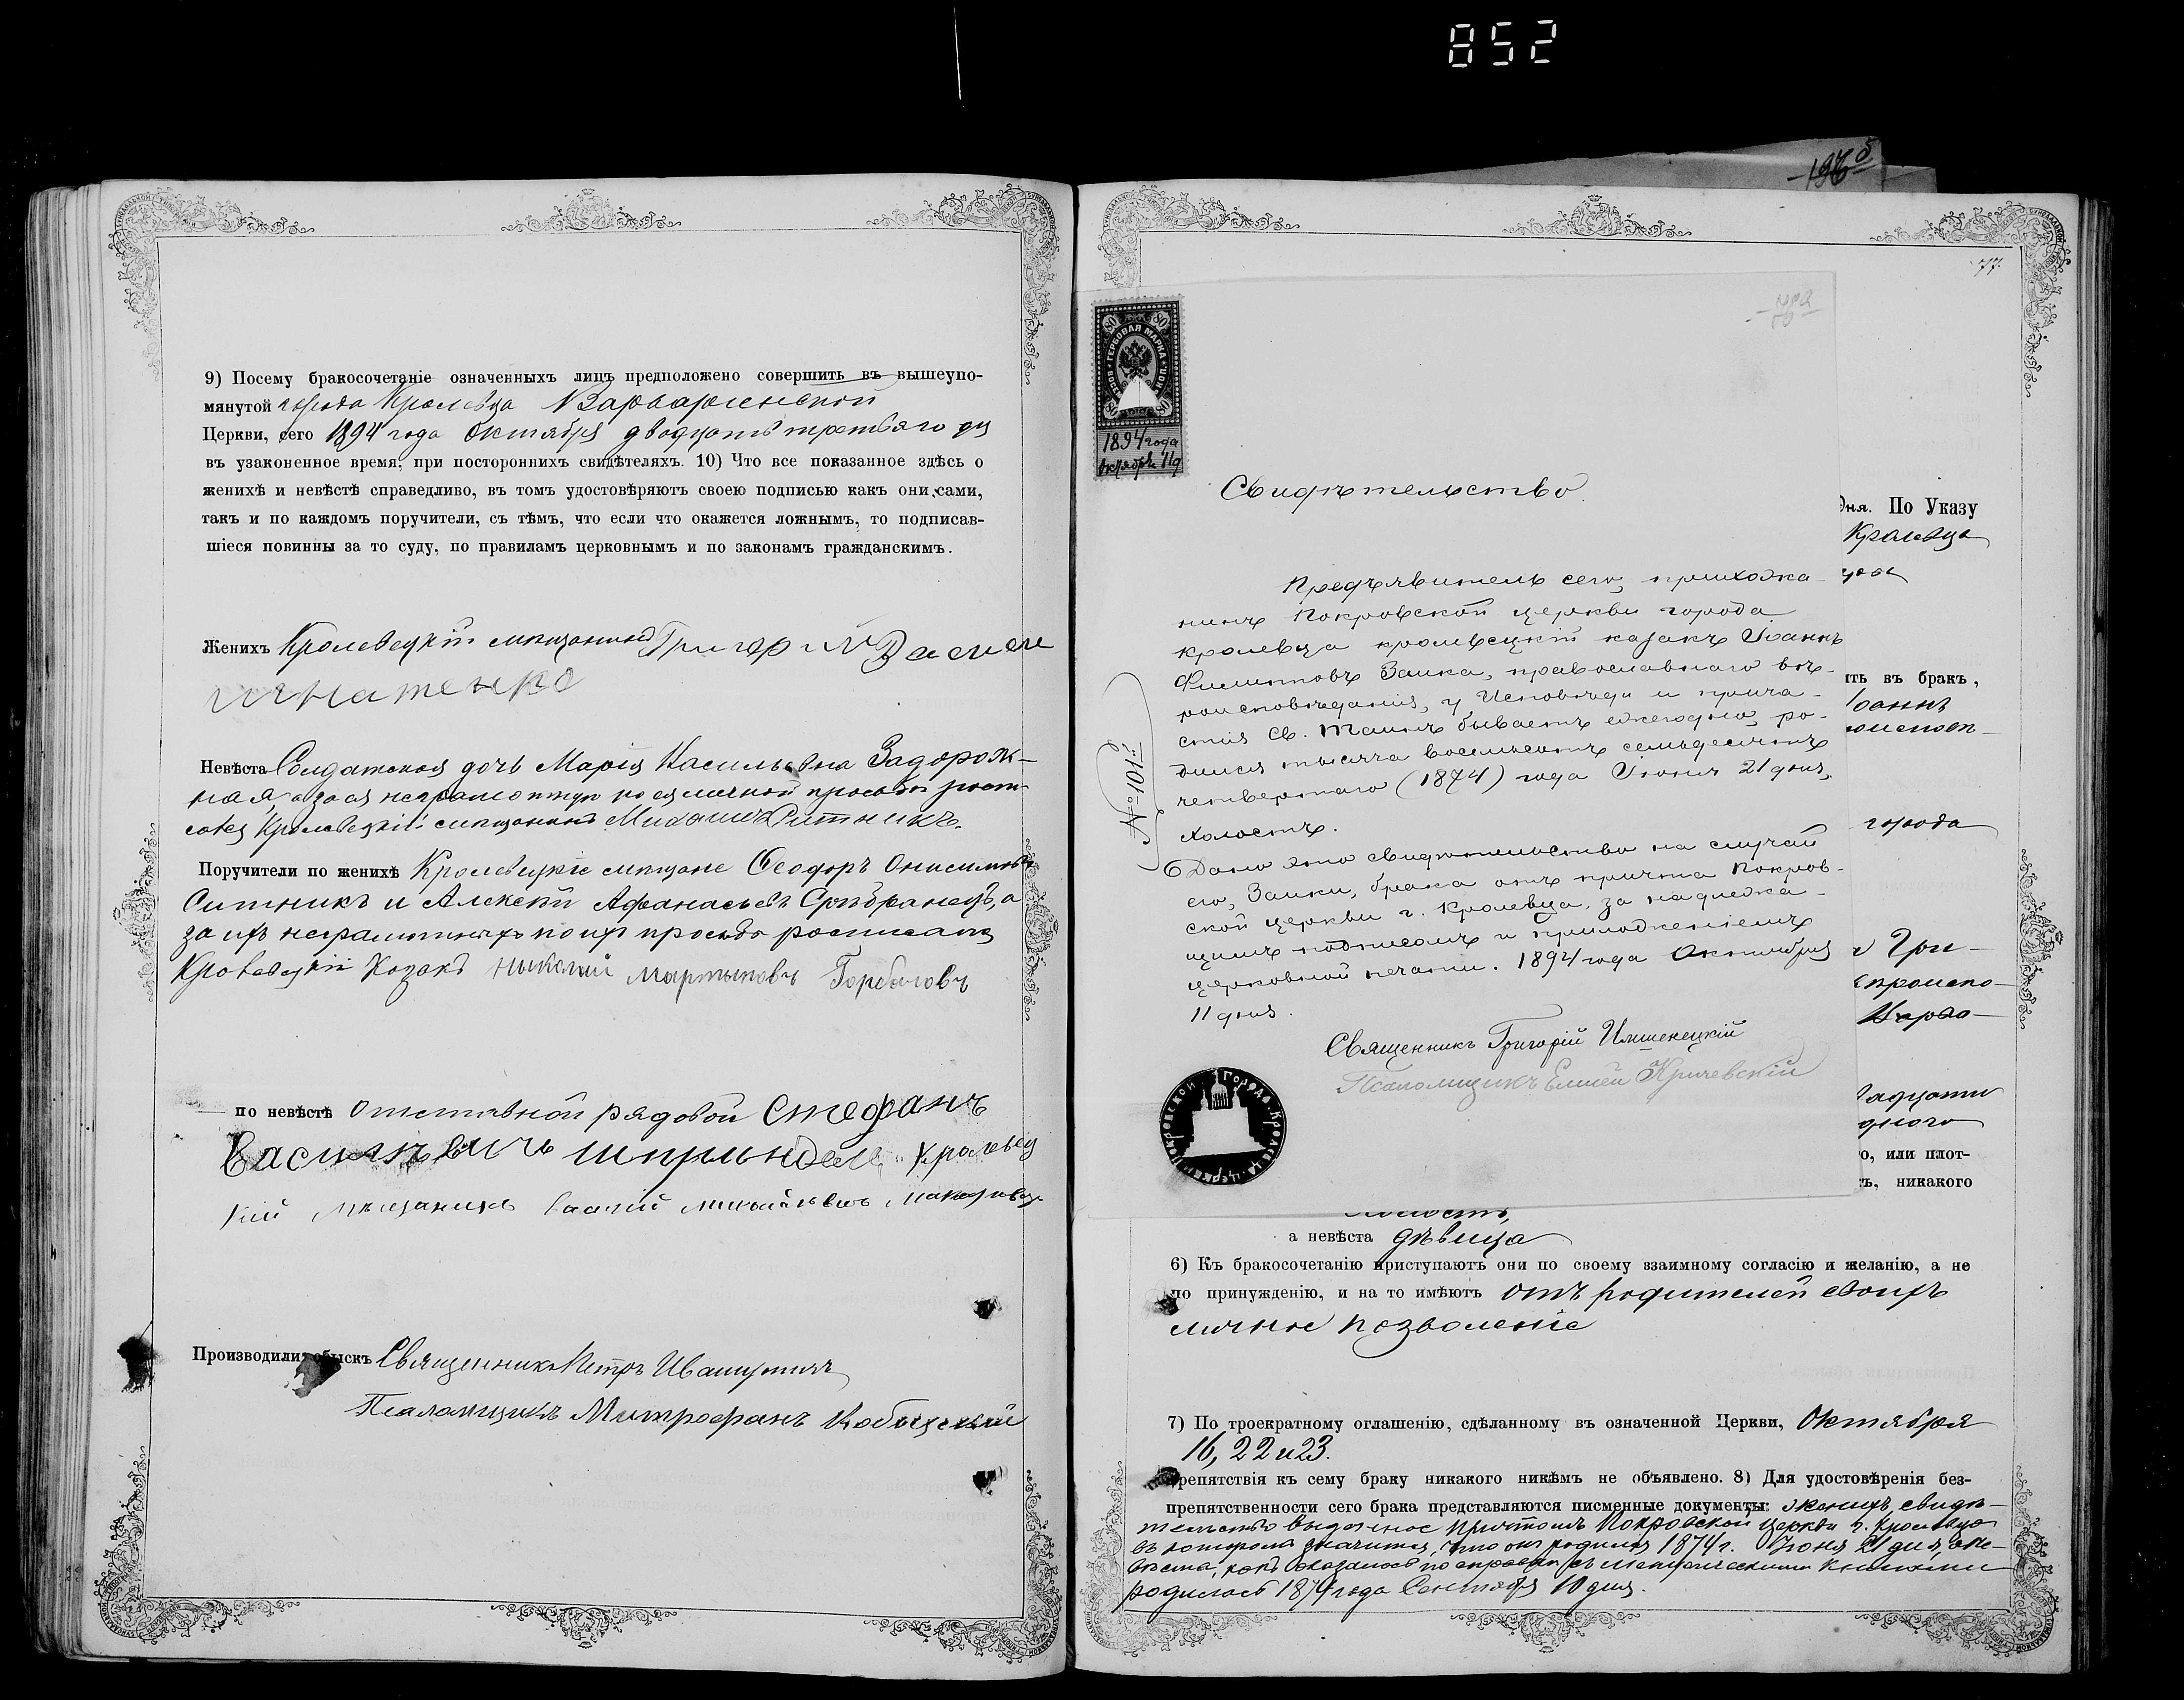 852
9) Посему бракосочетаніе означенныхъ лицъ предположено совершить въ вышеупо-
мянутой города Кролевца Варваринской
Церкви, сего 1894 года Октября двадцать третьяго дня
въ узаконенное время, при постороннихъ свидѣтеляхъ. 10) Что все показанное здѣсь о
женихѣ и невѣстѣ справедливо, въ томъ удостовѣряютъ своею подписью какъ они сами,
такъ и по каждомъ поручители, съ тѣмъ, что если что окажется ложнымъ, то подписав-
шіеся повинны за то суду, по правиламъ церковнымъ и по законамъ гражданскимъ.
Женихъ Кролевецкій мѣщанинъ Григорій
Игнатенко
Невѣста Солдатская дочь Марія Васильевна Задорож-
ная, а за ея неграмотную по ея личной просьбѣ роспи-
Кролевецкій мѣщанинъ Михаилъ Ситникъ.
Поручители по женихѣ Кролевецкіе мѣщане Феодоръ Онисимовъ
Ситникъ и Алексѣй Афанасьевъ а
за ихъ неграмотныхъ по ихъ просьбѣ росписался
Кролевецкій Козакъ Николай Мартыновъ Горбачовъ
по невѣстѣ Отставной рядовой Стефанъ
Василъевичъ Кролевец
кій мѣщанинъ
Производили обыскъ Священникъ Петръ
Псаломщикъ Митрофанъ
196
77
1894 года
Октября 11 д
ГЕРБОВАЯ МАРКА
80
№ 101й
Свидѣтельство.
Предъявитель сего, прихожа-
нинъ Покровской церкви города
Кролевца кролевецкій казакъ Іоаннъ
Филипповъ Заика, православнаго вѣ-
роисповѣданія, у Исповѣди и прича-
стія Св. Таинъ бываетъ ежегодно, ро-
дился тысяча восемьсотъ семьдесятъ
четвертаго (1874) года Іюня 21 дня,
холостъ.
Дано это свидѣтельство на случай
его, Заики, брака отъ причта Покров-
ской церкви г. Кролевца, за надлежа-
щимъ подписомъ и приложеніемъ
церковной печати. 1894 года Октября
11 дня.
Священникъ Григорій Имшенецкій
Псаломщикъ Елисей Кричевскій
ПОКРОВСКОЙ ГОРОДА КРОЛЕВЦА ЦЕРКВИ
дня. По Указу
Кролевца
ить въ бракъ,
Іоаннъ
города
и Гри-
Варва-
дцати
дного
о, или плот-
ъ, никакого
холостъ,
а невѣста дѣвица
6) Къ бракосочетанію приступаютъ они по своему взаимному согласію и желанію, а не
по принужденію, и на то имѣютъ отъ родителей своихъ
личное позволеніе
7) По троекратному оглашенію, сдѣланному въ означенной Церкви, Октября
16, 22 и 23.
препятствія къ сему браку никакого никѣмъ не объявлено. 8) Для удостовѣренія без-
препятственности сего брака представляются писменные документы: женихъ, свидѣ-
тельство выданное причтомъ Покровской церкви г. Кролевца
въ которомъ значится, что онъ родился 1874 г. Іюня 21 дня, а не-
вѣста, какъ оказалось по справкѣ съ метрическими книгами
родилась 1874 года Сентября 10 дня.